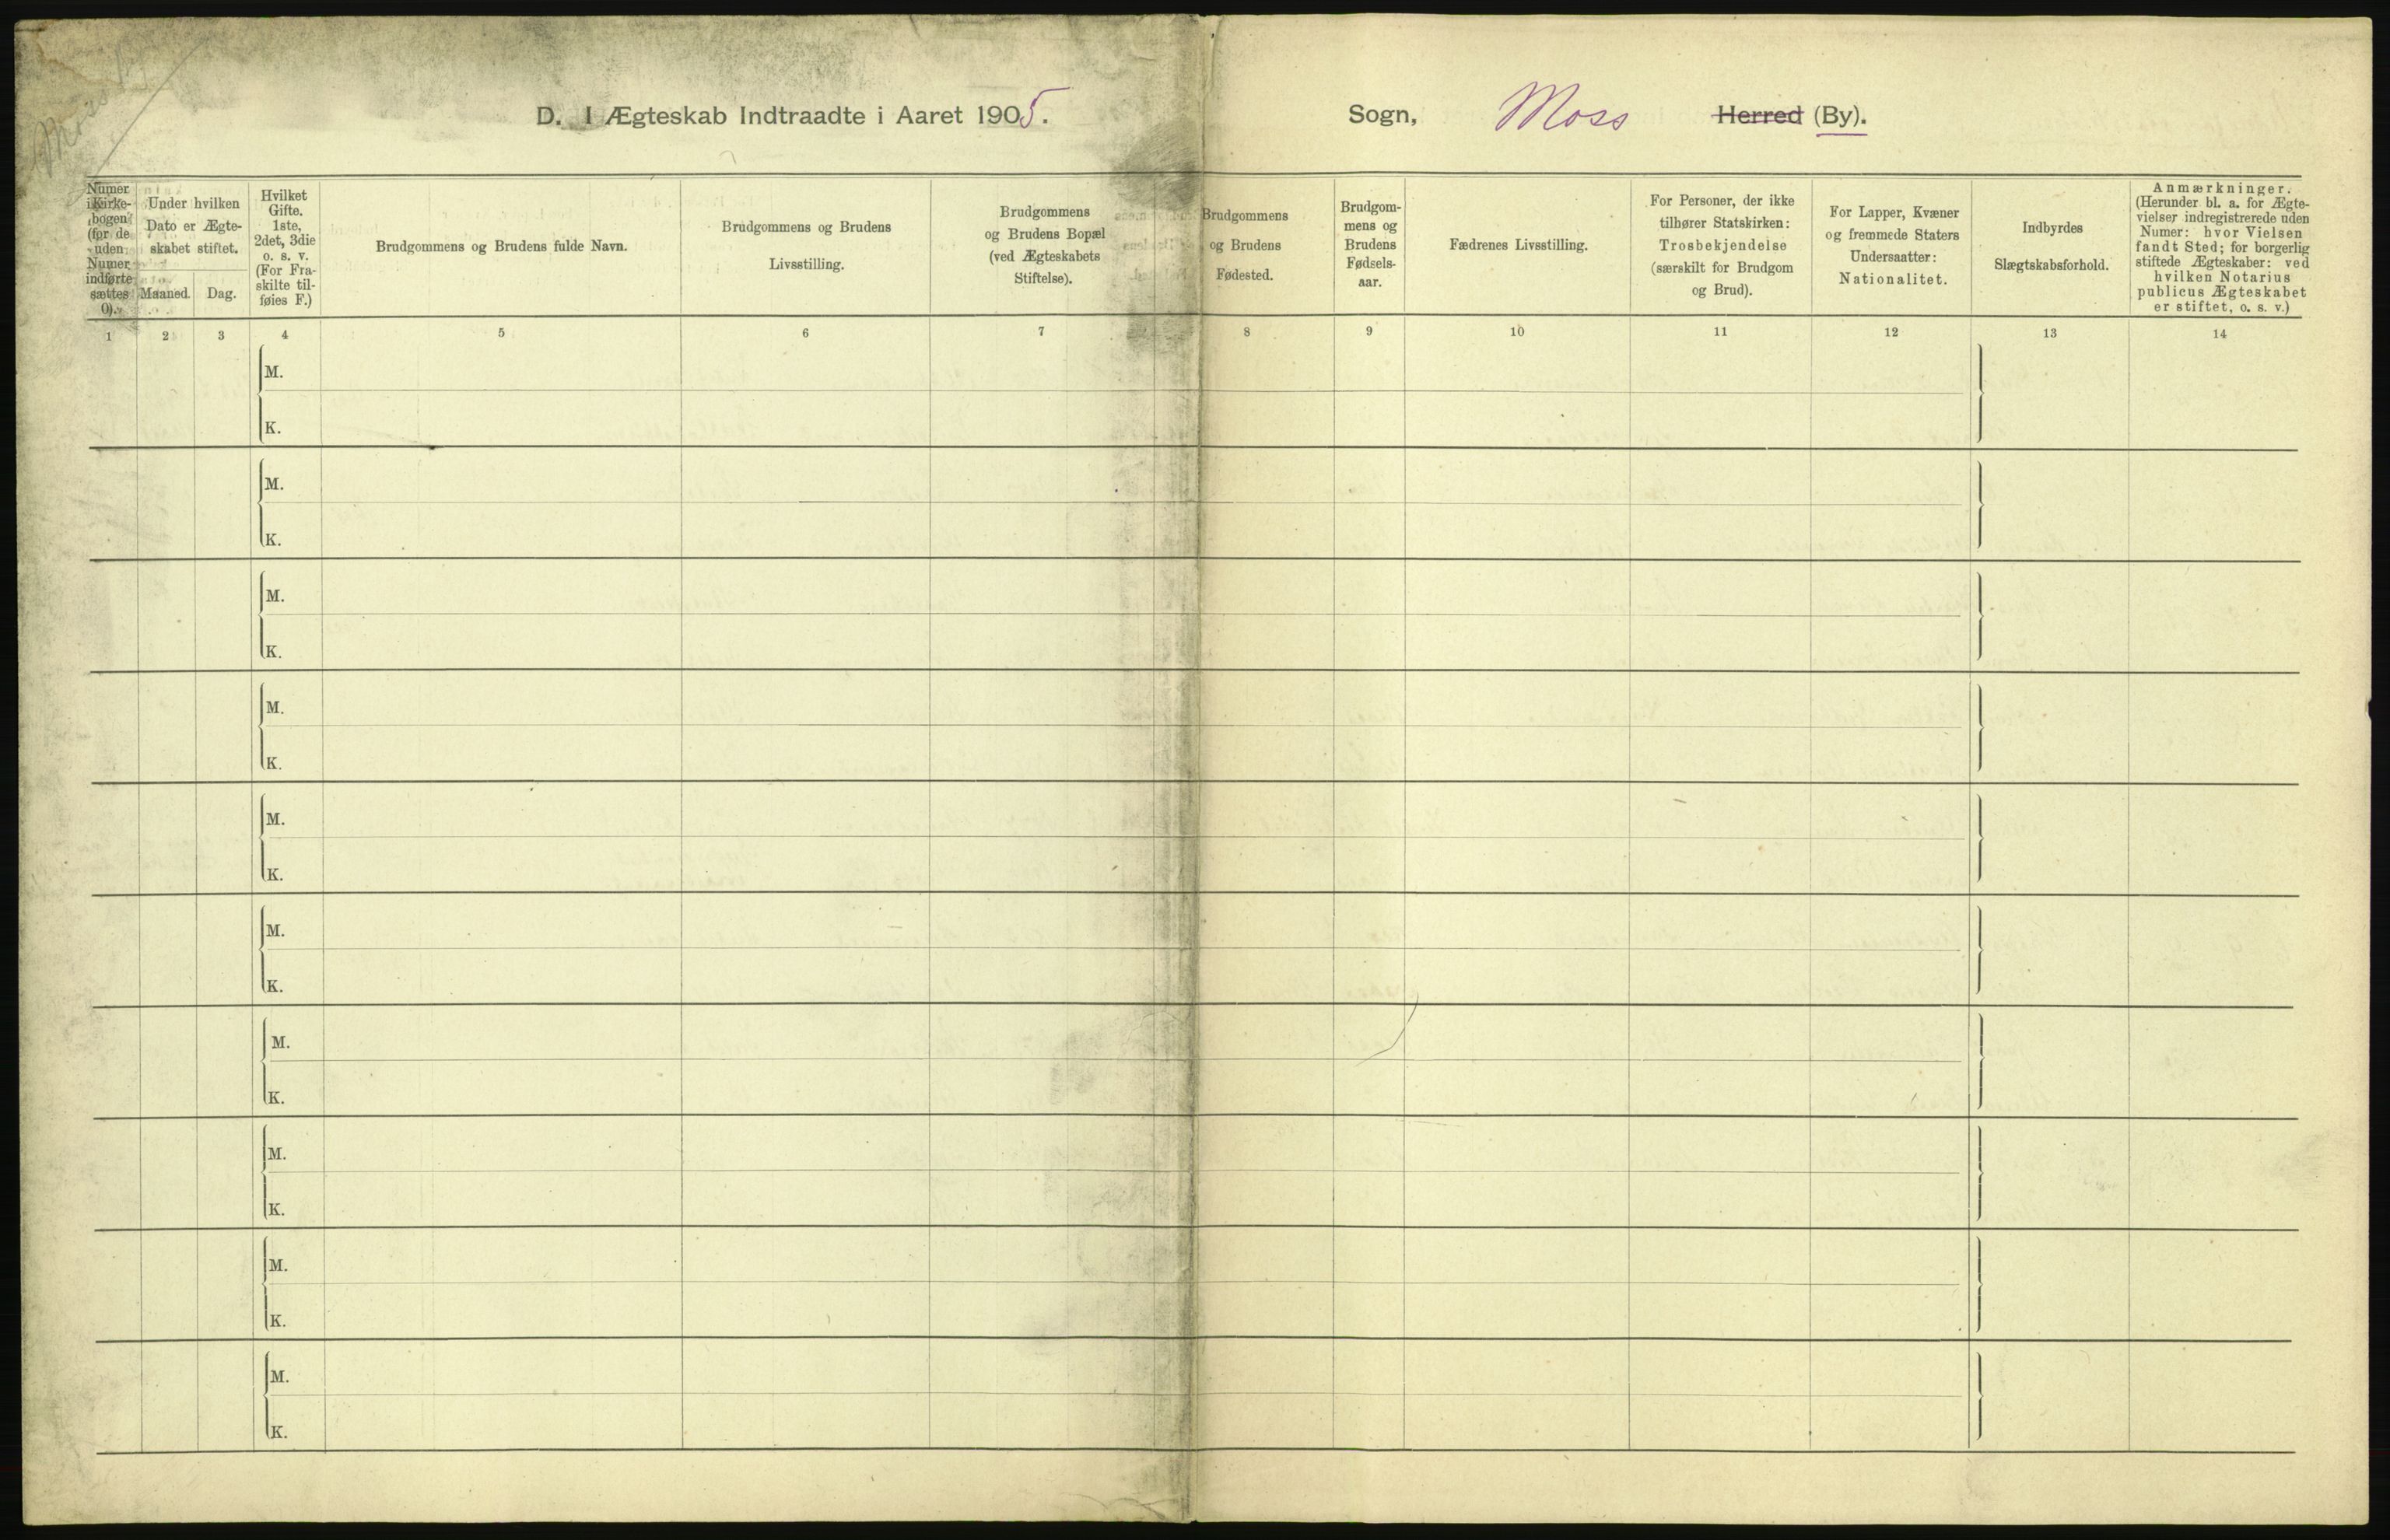 Moss By
D. I Ægteskab Indtraadte i Aaret 1905.
Sogn, Moss Herred (By).
Numer
i Kirke-
bogen
(for de
uden
Numer
indførte
sættes
0).
Under hvilken
Dato er Ægte-
skabet stiftet.
Maaned.
Dag.
Hvilket
Gifte.
1ste,
2det, 3die
o. s. v.
(For Fra-
skilte til-
føies F.)
Brudgommens og Brudens fulde Navn.
Brudgommens og Brudens
Livsstilling.
Brudgommens
og Brudens Bopæl
(ved Ægteskabets
Stiftelse).
Brudgommens
og Brudens
Fødested.
Brudgom-
mens og
Brudens
Fødsels-
aar.
Fædrenes Livsstilling.
For Personer, der ikke
tilhører Statskirken:
Trosbekjendelse
(særskilt for Brudgom
og Brud).
For Lapper, Kvæner
og fremmede Staters
Undersaatter:
Nationalitet.
Indbyrdes
Slægtskabsforhold.
Anmærkninger.
(Herunder bl. a. for Ægte-
vielser indregistrerede uden
Numer: hvor Vielsen
fandt Sted; for borgerlig
stiftede Ægteskaber: ved
hvilken Notarius
publicus Ægteskabet
er stiftet, o. s. v.)
1 2 3 4 5 6 7 8 9 10 11 12 13 14
M.
K.
M.
K.
M.
K.
M.
K.
M.
K.
M.
K.
M.
K.
M.
K.
M.
K.
M.
K.